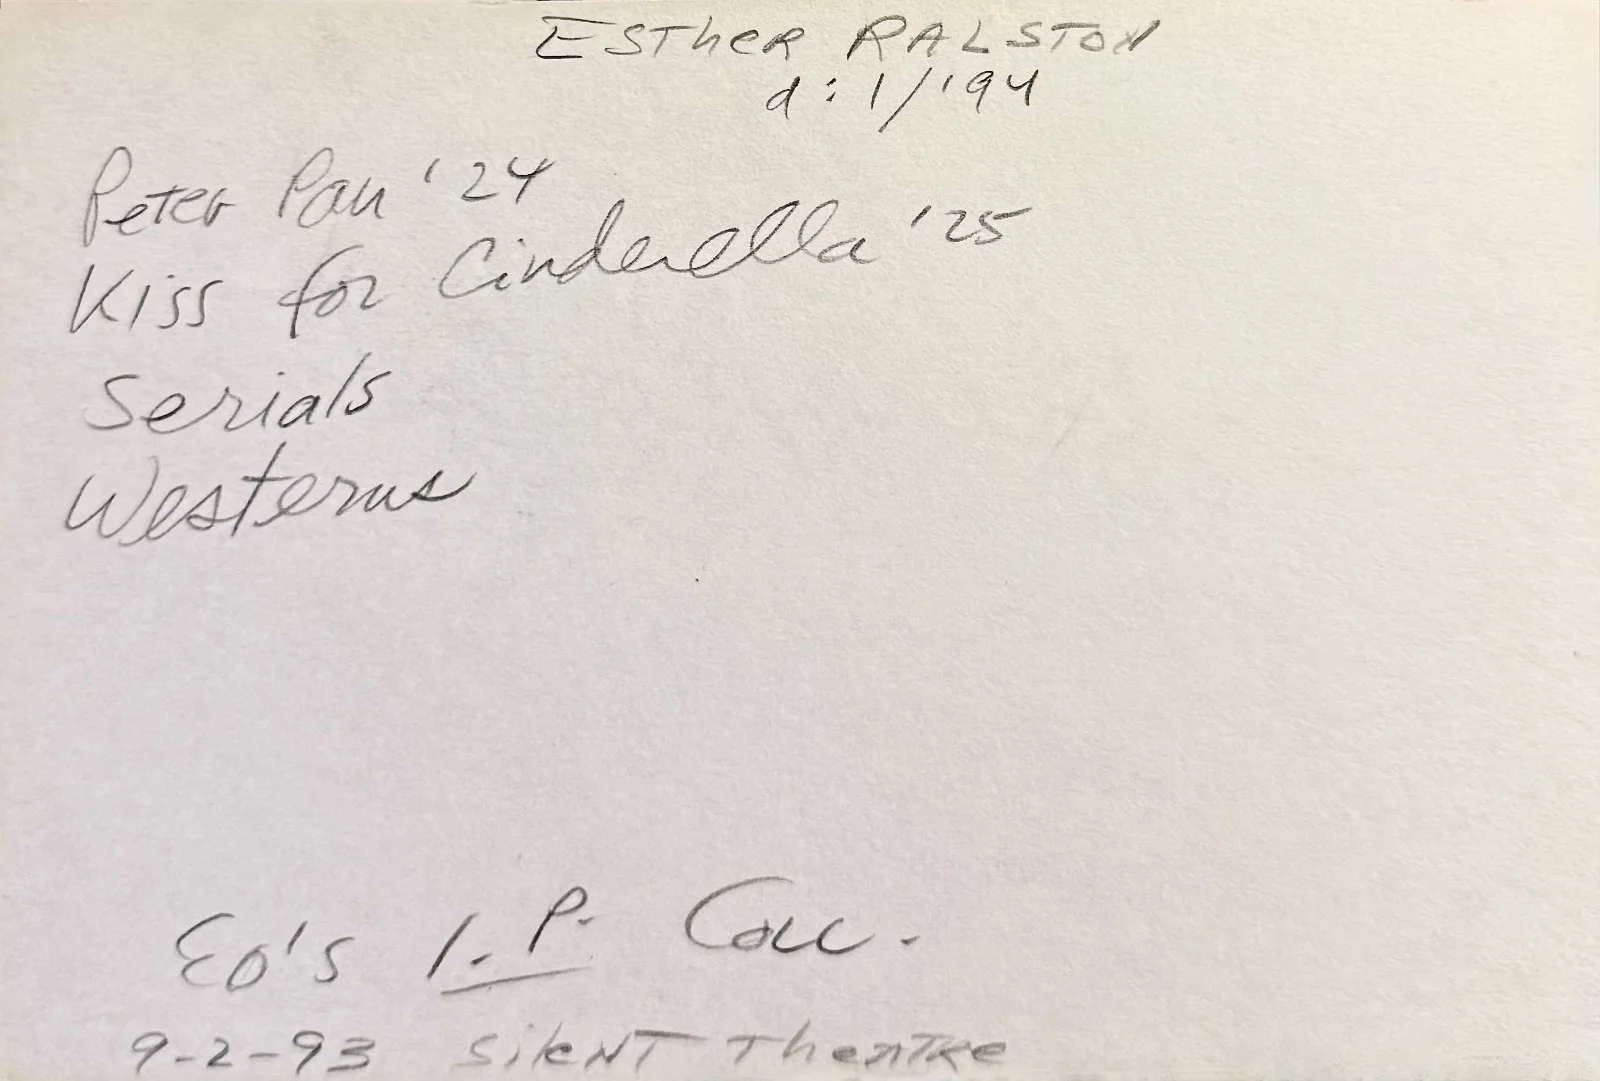 ESTHER RALSTON
d: 1/'94
Peter Pan '24
Kiss for Cinderella '25
Serials
Westerns
ED'S I.P. Coll.
9-2-93 SILENT THEATRE